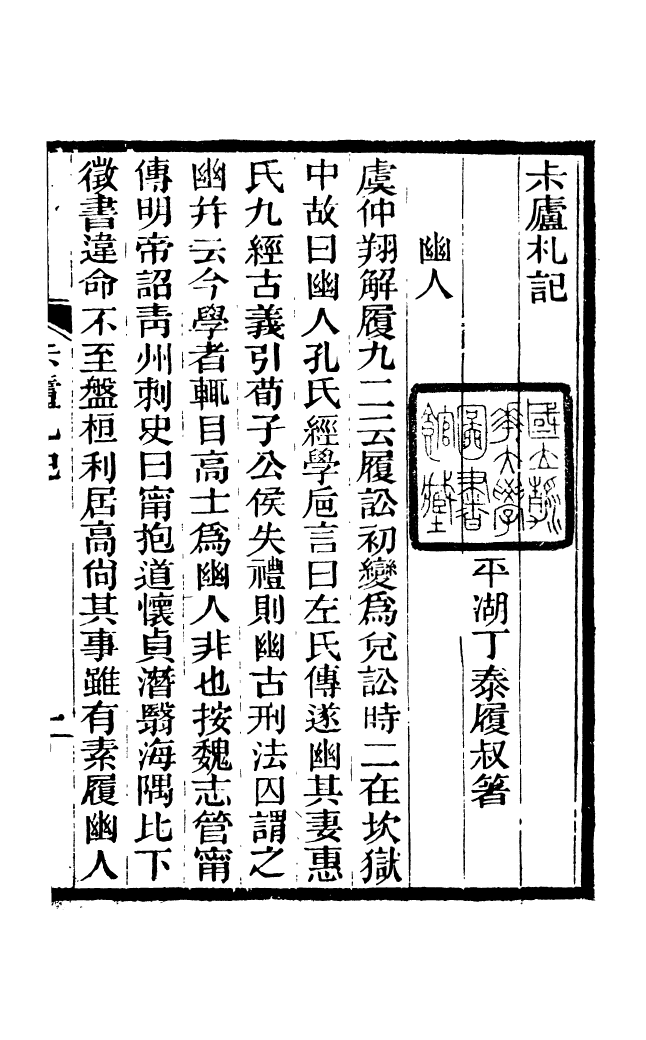 尗廬札記
平湖丁泰履叔箸
幽人
虞仲翔解履九二云履訟初變爲兌訟時二在坎獄
中故曰幽人孔氏經學卮言曰左氏傳遂幽其妻惠
氏九經古義引荀子公侯失禮則幽古刑法囚謂之
幽幷云今學者輒目高士爲幽人非也按魏志管甯
傳明帝詔靑州刺史曰甯抱道懷貞潛翳海隅比下
徵書違命不至盤桓利居高尙其事雖有素履幽人
國立
學
圖書
館